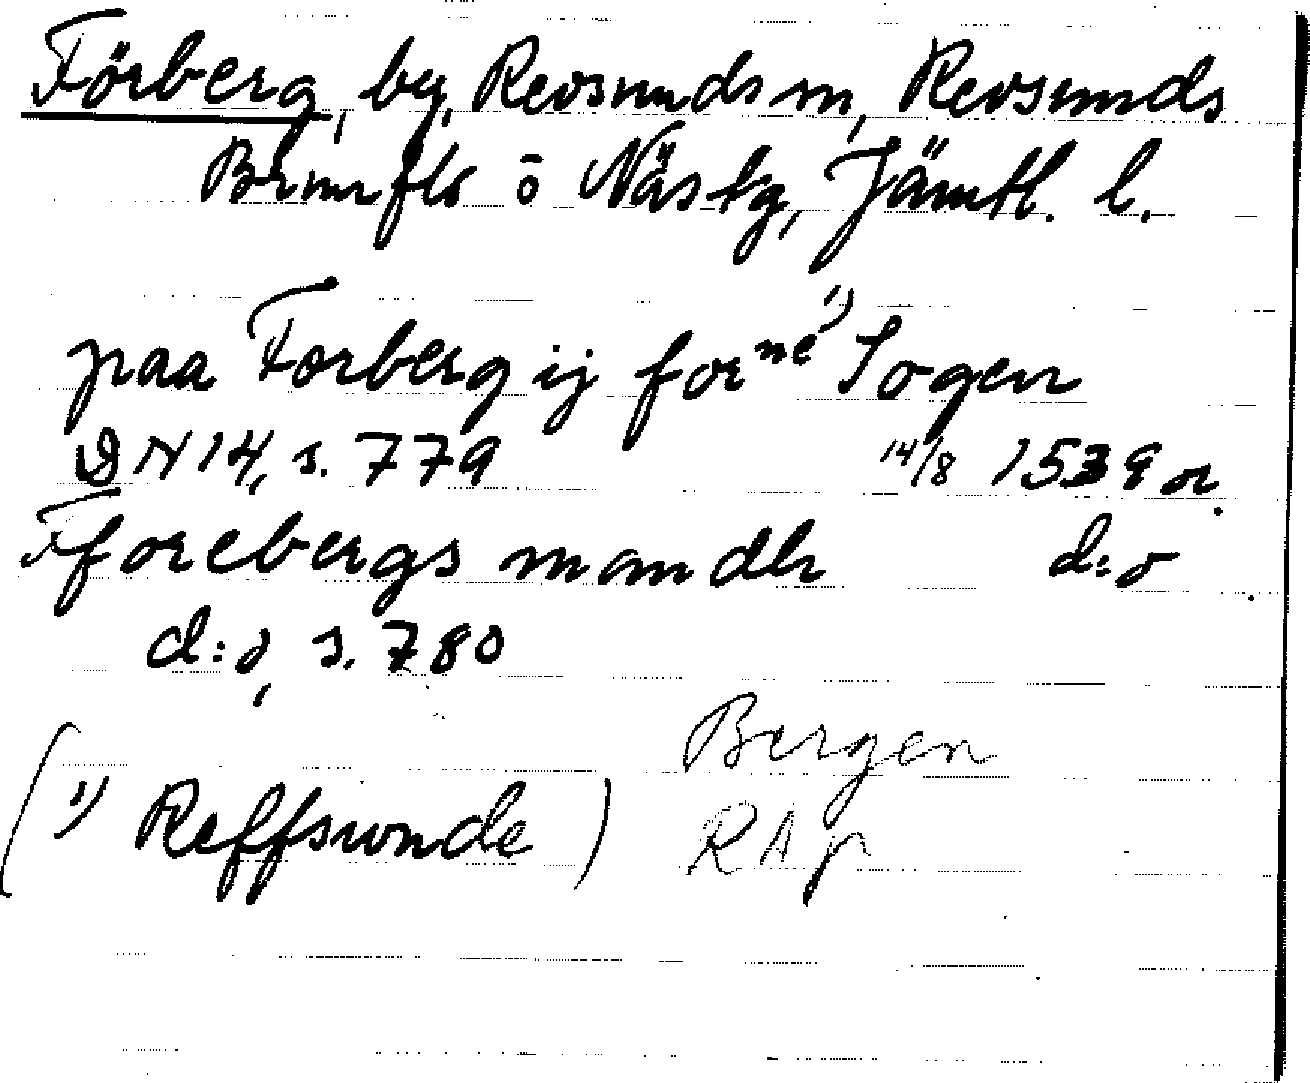 Förberg, by, Revsunds sn, Revsunds
Brunfls o Näs tg, Jämtl. l.
paa Forberg ij forne 1) Sogen
DN 14, s. 779 14/8 1539 or.
Fforebergs mandh d:o
d:o, s. 780
Bergen
(1) Reffsunde) RAp